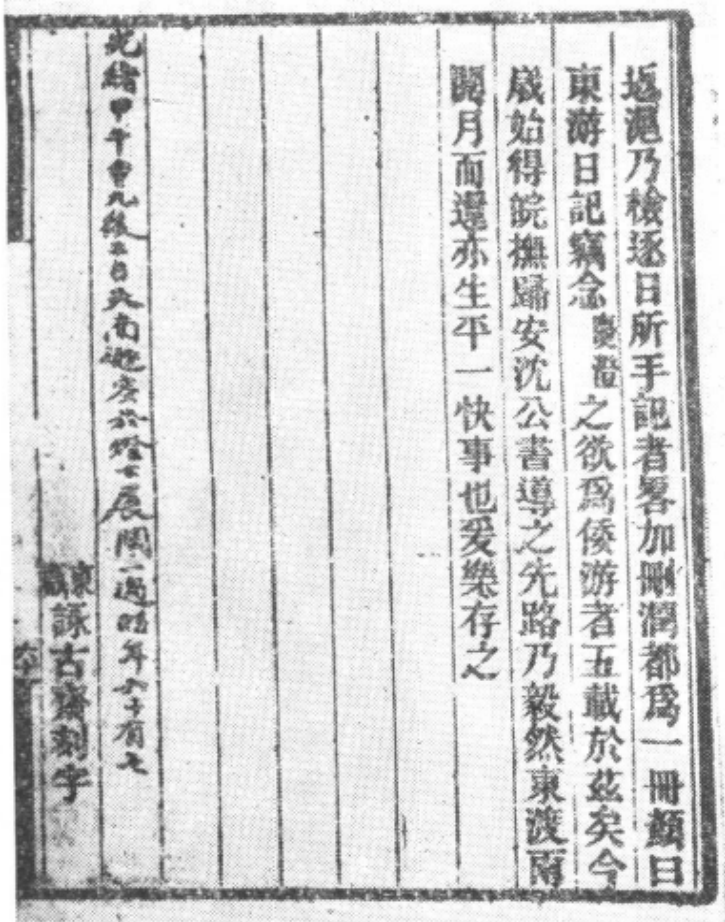 返滬乃檢逐日所手記者畧加刪潤都爲一冊顏曰
東游日記竊念慶澄之欲爲倭游者五載於茲矣今
歲始得皖撫歸安沈公書導之先路乃毅然東渡兩
閱月而還亦生平一快事也爰樂存之
光緒甲午重九後二日天南遯叟於燈下展閱一過時年六十有七
東甌詠古齋刻字